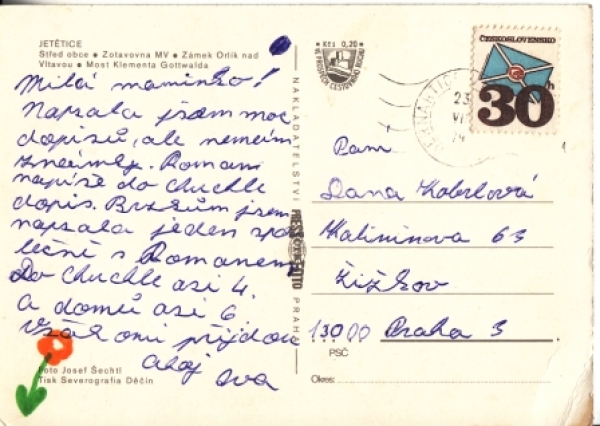 JETĚTICE
Střed obce • Zotavovna MV • Zámek Orlík nad
Vltavou • Most Klementa Gottwalda
Milá maminko!
Napsala jsem moc
dopisů, ale nemám
známky. Romani
napíše do Chuchle
dopis. Brzkům jsem
napsala jeden spo
lečni s Romanem
Do Chuchle asi 4.
a domů asi 6.
Vždť oni přijdou
Ahoj
Iva
Foto Josef Šechtl
Tisk Severografia Děčín
NAKLADATELSTVÍ PRESSFOTO PRAHA
Kčs 0,20
ČESKOSLOVENSKO
30h
23
VI
74
Paní
Dana Koberlová
Kalininova 63
Žižkov
13000 Praha 3
PSČ
Okres: